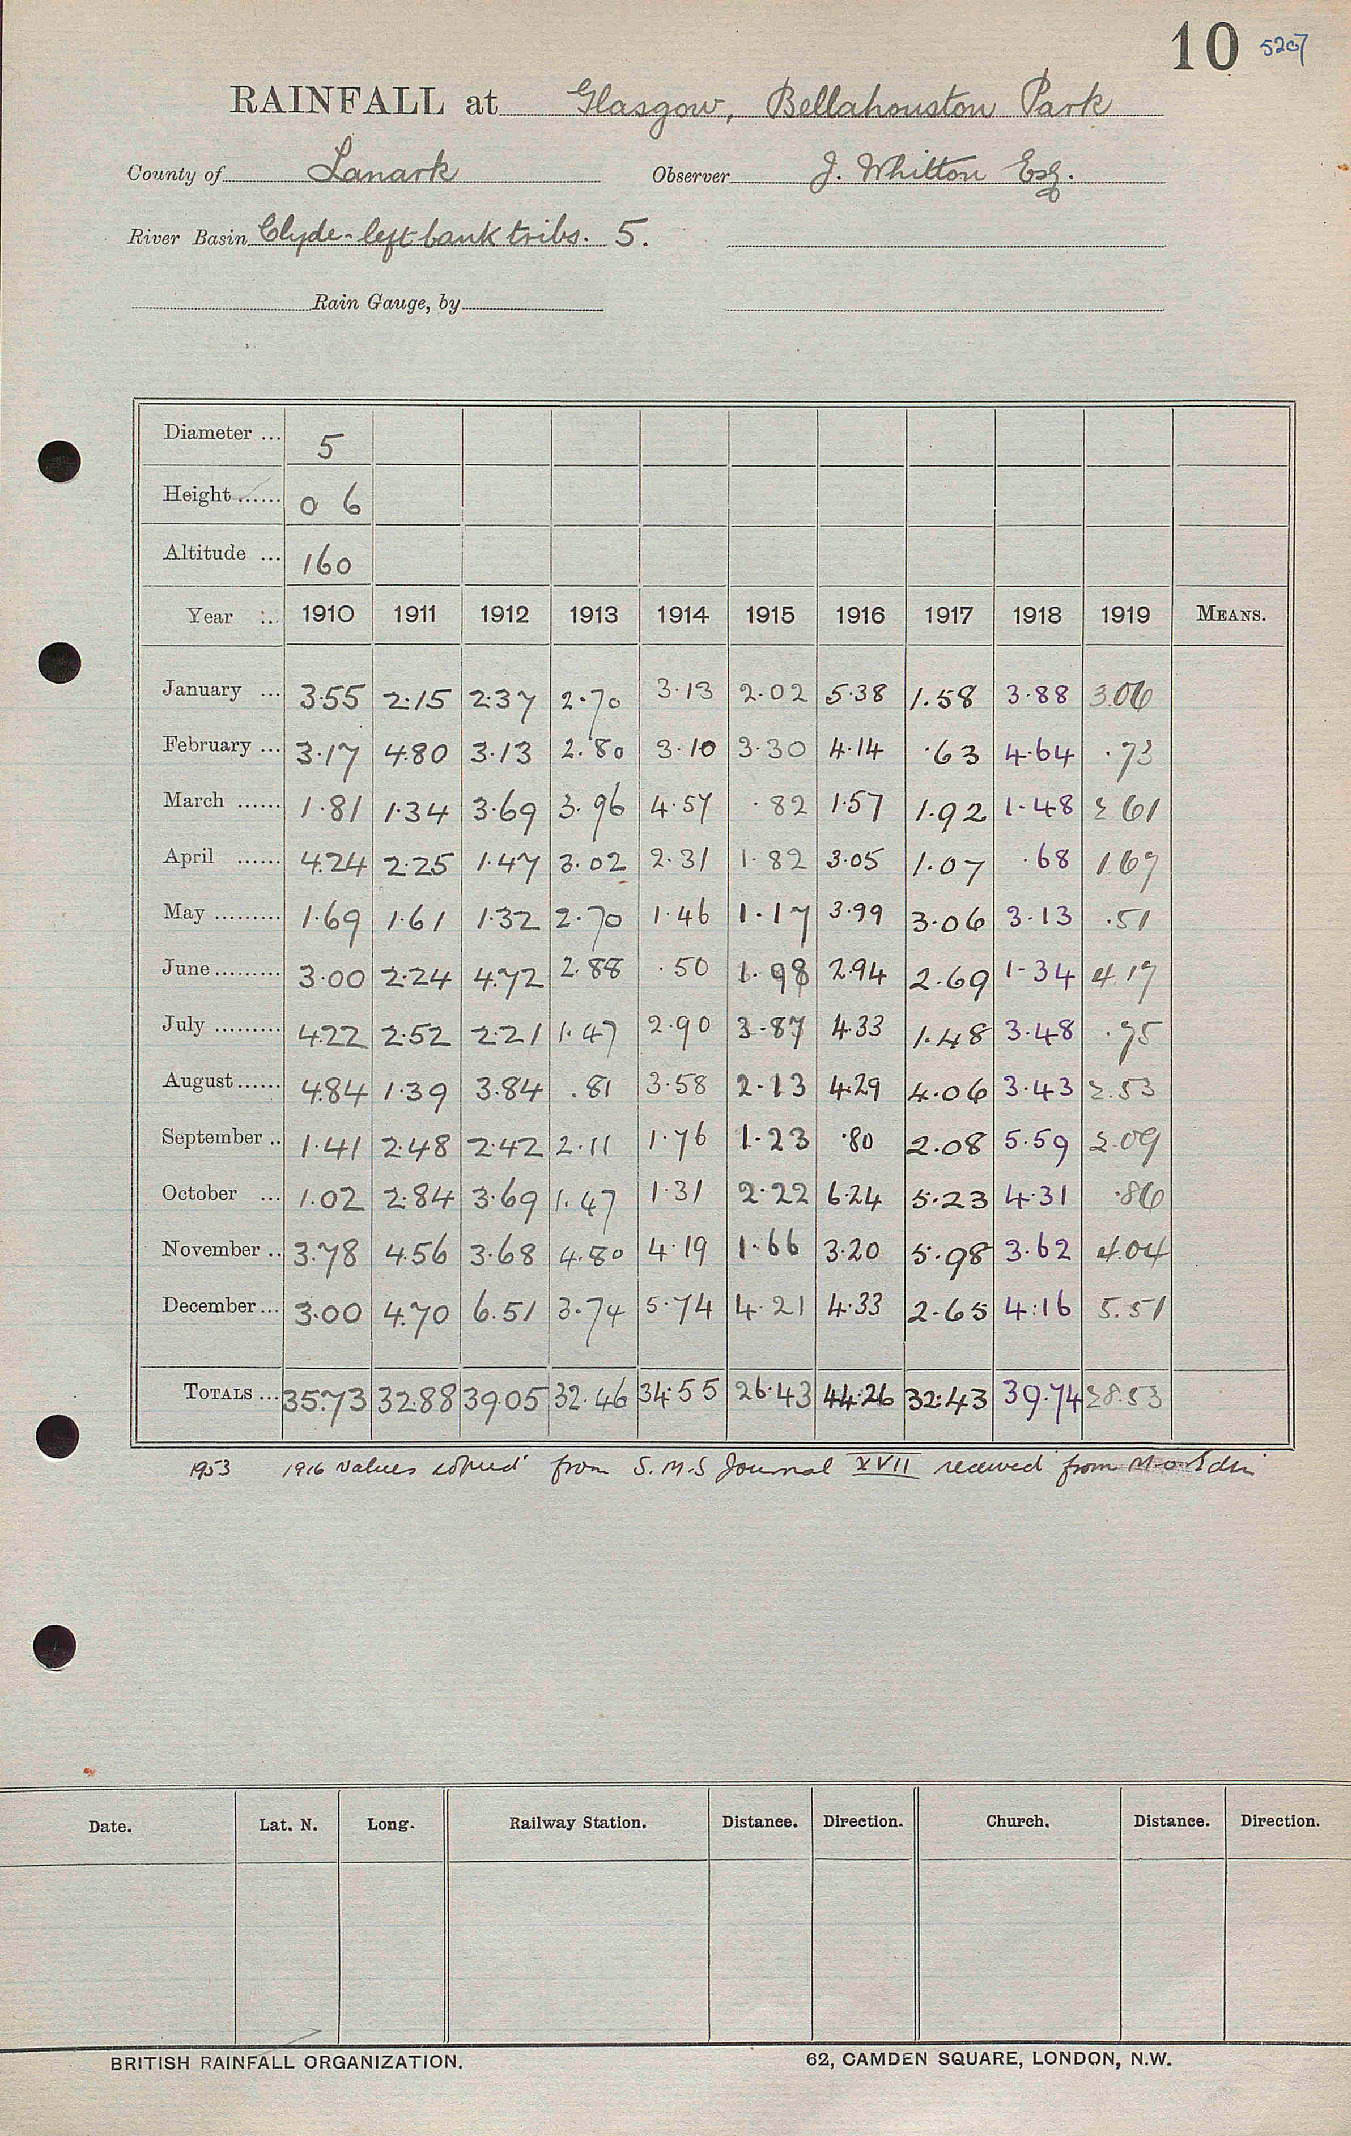 10 5207
RAINFALL at Glasgow, Bellahouston Park
County of Lanark Observer J. Whitton Esq.
River Basin Clyde - left bank tribs. 5.
Rain Gauge, by
Diameter ... 5
Height ...... 0 6
Altitude ... 160
Year ... 1910 1911 1912 1913 1914 1915 1916 1917 1918 1919 MEANS.
January ... 3.55 2.15 2.37 2.70 3.13 2.02 5.38 1.58 3.88 3.06
February ... 3.17 4.80 3.13 2.80 3.10 3.30 4.14 .63 4.64 .73
March ...... 1.81 1.34 3.69 3.96 4.57 .82 1.57 1.92 1.48 2.61
April ...... 4.24 2.25 1.47 3.02 2.31 1.82 3.05 1.07 .68 1.67
May ......... 1.69 1.61 1.32 2.70 1.46 1.17 3.99 3.06 3.13 .51
June ......... 3.00 2.24 4.72 2.88 .50 1.98 2.94 2.69 1.34 4.17
July ......... 4.22 2.52 2.21 1.47 2.90 3.87 4.33 1.48 3.48 .75
August ...... 4.84 1.39 3.84 .81 3.58 2.13 4.29 4.06 3.43 2.53
September .. 1.41 2.48 2.42 2.11 1.76 1.23 .80 2.08 5.59 2.09
October ... 1.02 2.84 3.69 1.47 1.31 2.22 6.24 5.23 4.31 .86
November .. 3.78 4.56 3.68 4.80 4.19 1.66 3.20 5.98 3.62 4.04
December ... 3.00 4.70 6.51 3.74 5.74 4.21 4.33 2.65 4.16 5.51
TOTALS ... 35.73 32.88 39.05 32.46 34.55 26.43 44.26 32.43 39.74 28.53
1953 1916 values copied from S.M.S Journal XVII received from
Date. Lat. N. Long. Railway Station. Distance. Direction. Church. Distance. Direction.
BRITISH RAINFALL ORGANIZATION. 62, CAMDEN SQUARE, LONDON, N.W.